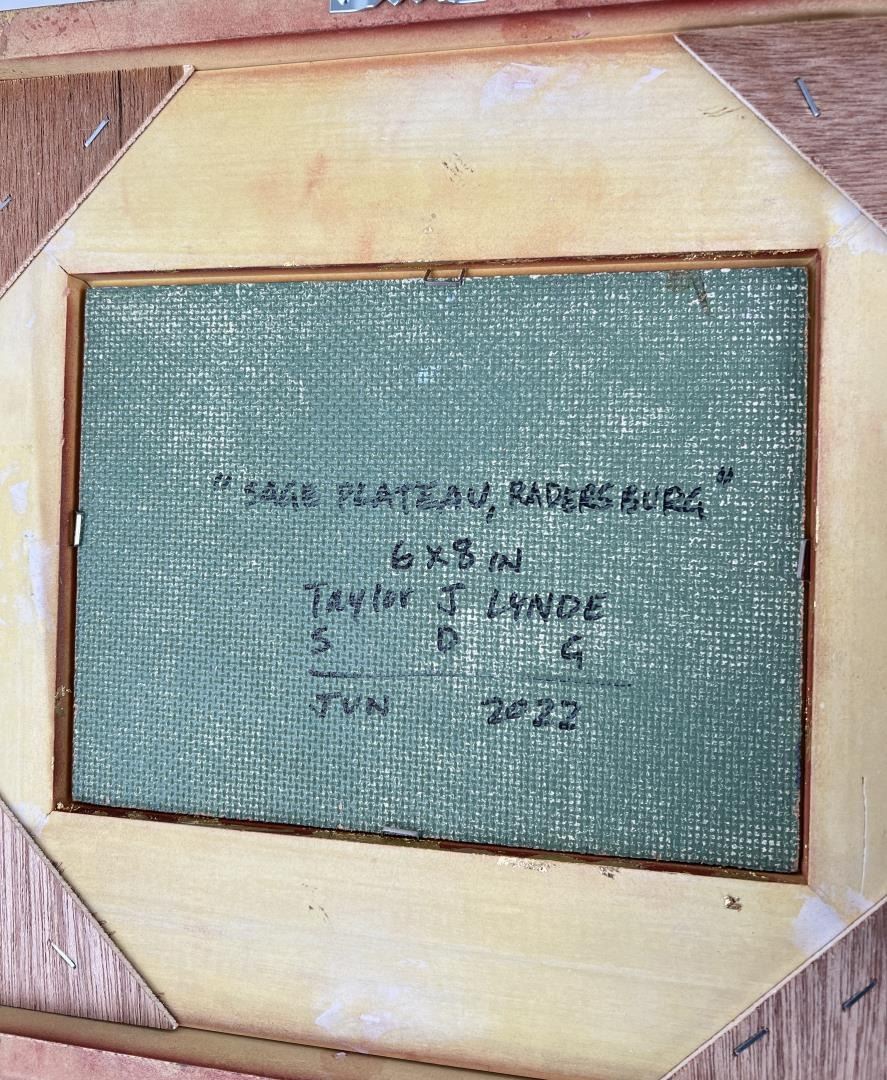 "SAGE PLATEAU, RADERSBURG"
6 x 8 IN
Taylor J LYNDE
S D G
JUN 2022